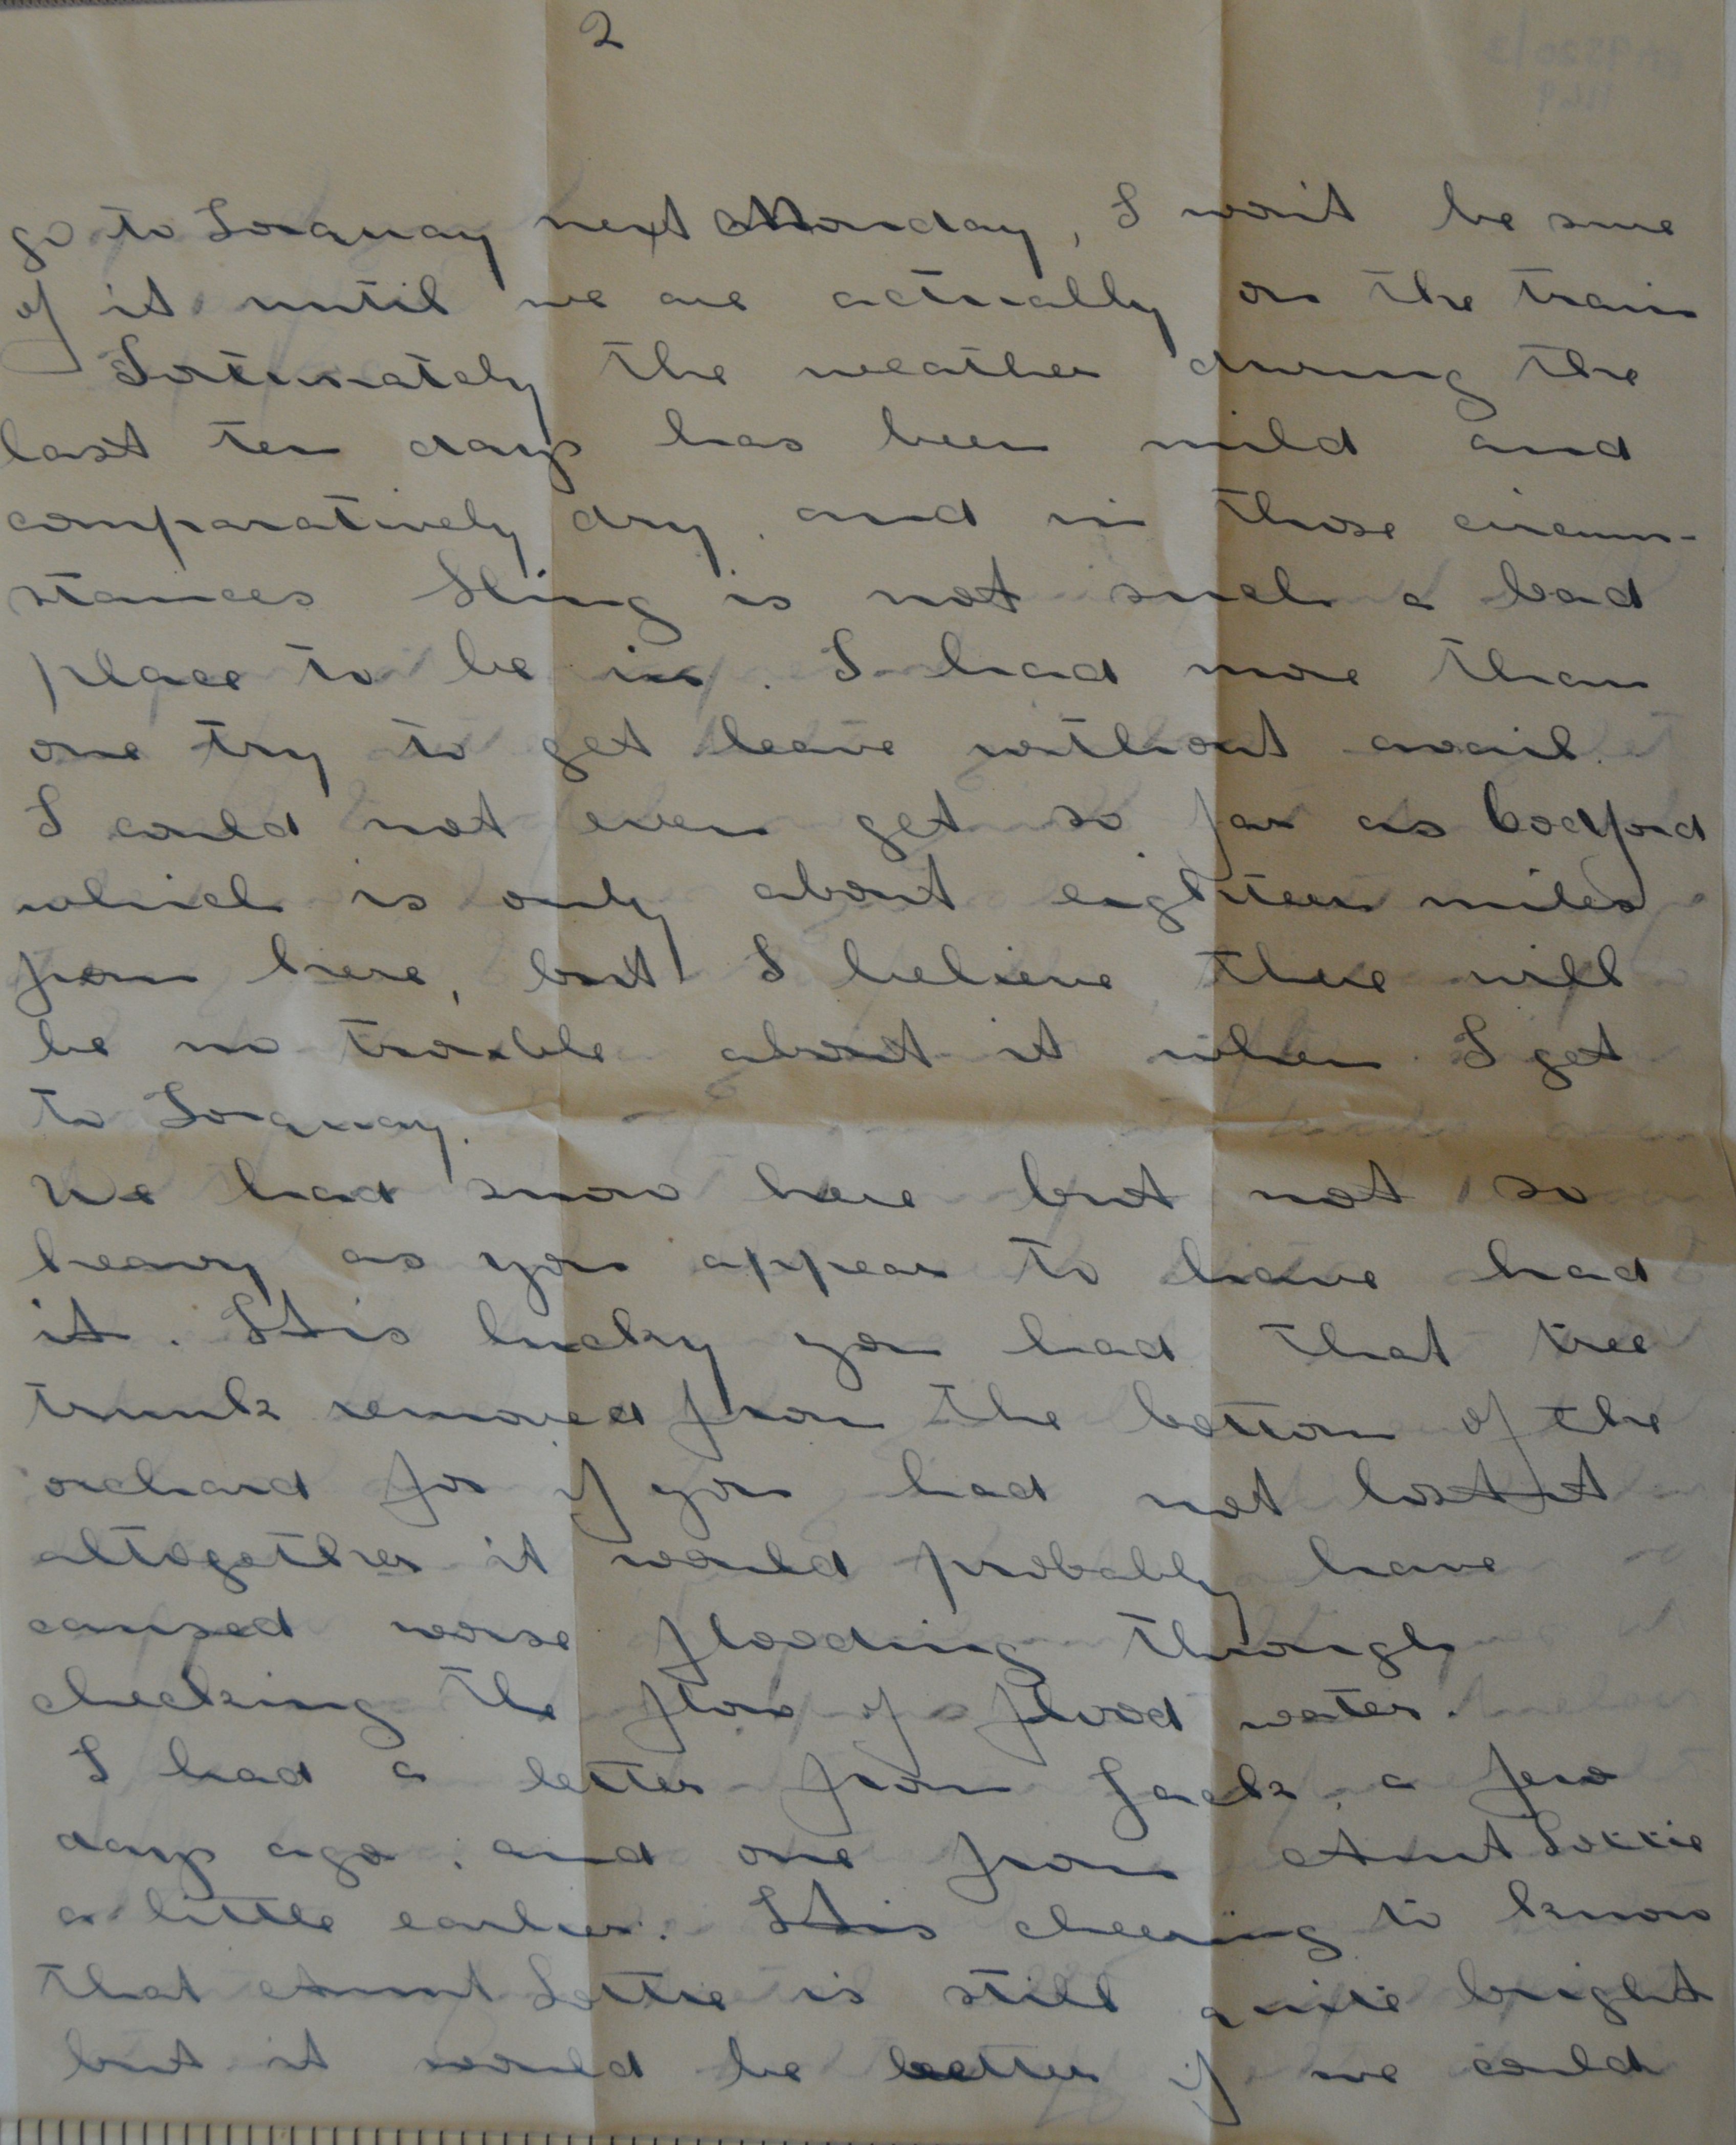 2
go to Torquay next Monday, I won't be sure
of it until we are actually on the train
Fortunately the weather during the
last ten days has been mild and
comparatively dry, and in those circum-
stances Sling is not such a bad
place to be in. I had more than
one try to get leave without avail.
I could not even get so far as Codford
which is only about eighteen miles
from here, but I believe there will
be no trouble about it when I get
to Torquay.
We had snow here but not so
heavy as you appear to have had
it. It is lucky you had that tree
trunk removed from the bottom of the
orchard for if you had not lost it
altogether it would probably have
caused worse flooding through
checking the flow of flood water.
I had a letter from Jack, a few
days ago, and one from Aunt Lottie
a little earlier. It is cheering to know
that Aunt Lottie is still quite bright
but it would be better if we could